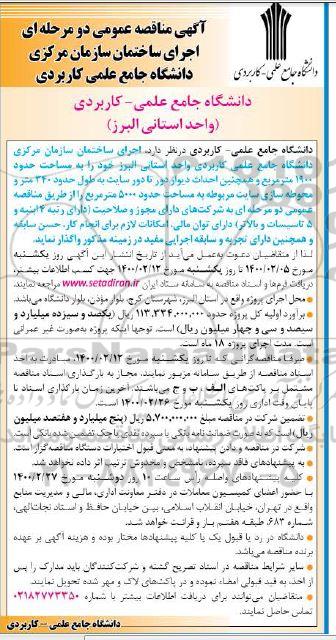 آگهی مناقصه عمومی دو مرحله ای
اجرای ساختمان سازمان مرکزی
دانشگاه جامع علمی کاربردی
دانشگاه جامع علمی-کاربردی
دانشگاه جامع علمی- کاربردی
(واحد استانی البرز)
دانشگاه جامع علمی- کاربردی درنظر دارد، اجرای ساختمان سازمان مرکزی
دانشگاه جامع علمی کاربردی واحد استانی البرز خود را به مساحت حدود
۱۹۰۰ مترمربع و همچنین احداث دیوار دور تا دور سایت به طول حدود ۳۴۰ متر و
محوطه سازی سایت مربوطه به مساحت حدود ۵۰۰۰ مترمربع را از طریق مناقصه
عمومی دو مرحله ای به شرکت‌های دارای مجوز و صلاحیت (دارای رتبه ۴ ابنیه و
۵ تاسیسات و بالاتر) دارای توان مالی، امکانات لازم برای انجام کار، حسن سابقه
و همچنین دارای تجربه و سابقه اجرایی مفید در زمینه مذکور واگذار نماید.
لذا از متقاضیان دعوت به‌عمل می‌آید از تاریخ انتشار این آگهی روز یکشنبه
مورخ ۱۴۰۰/۰۲/۰۵ تا روز یکشنبه مورخ ۱۴۰۰/۰۲/۱۲ جهت کسب اطلاعات بیشتر،
دریافت فرم‌ها و اسناد مناقصه به سامانه ستاد ایران www.setadiran.ir مراجعه نمایند.
محل اجرای پروژه واقع در استان البرز، شهرستان کرج، بلوار مؤذن، بلوار دانشگاه می‌باشد.
برآورد اولیه کل پروژه حدود ۱۱۳.۳۳۴.۰۰۰.۰۰۰ ریال (یکصد و سیزده میلیارد و
سیصد و سی و چهار میلیون ریال) است. توجها اینکه پروژه به‌صورت غیر عمرانی
است. مدت اجرای پروژه ۱۸ ماه است.
صرفا مناقصه‌گرانی که تا روز یکشنبه مورخ ۱۴۰۰/۰۲/۱۲، مبادرت به اخذ
اسناد مناقصه از طریق سامانه مزبور نمایند، مجاز به بارگذاری اسناد مناقصه
مشتمل بر پاکت‌های الف، ب و ج می‌باشند. آخرین زمان بارگذاری اسناد تا
پایان وقت اداری روز یکشنبه مورخ ۱۴۰۰/۰۲/۲۶ است.
تضمین شرکت در مناقصه مبلغ ۵.۷۰۰.۰۰۰.۰۰۰ ریال (پنج میلیارد و هفتصد میلیون
ریال) است که به صورت ضمانت نامه بانکی یا سپرده نقدی یا چک تضمین شده بانکی است.
شرکت در مناقصه و دادن پیشنهاد، به معنی قبول اختیارات دستگاه مناقصه گزار است.
به پیشنهادهای فاقد سپرده، نامشخص و مخدوش ترتیب اثر داده نخواهد شد.
پیشنهادهای واصله راس ساعت ۱۰ روز دوشنبه مورخ ۱۴۰۰/۲/۲۷
با حضور اعضای کمیسیون معاملات در دفتر معاونت اداری، مالی و مدیریت منابع
واقع در تهران، خیابان انقلاب اسلامی، بین خیابان حافظ و استاد نجات‌الهی،
شماره ۶۸۳، طبقه هفتم باز و قرائت خواهد شد.
دانشگاه در رد یا قبول یک یا کلیه پیشنهادها مختار بوده و هزینه آگهی بر عهده
برنده مناقصه می‌باشد.
سایر شرایط مناقصه در اسناد تصریح گشته و شرکت‌کنندگان باید مدارک را پس
از اخذ، به قید قبولی امضاء نموده و در پاکت‌های لاک و مهر شده تحویل نمایند.
متقاضیان می‌توانند برای دریافت اطلاعات بیشتر با شماره ۰۲۱۸۲۷۷۳۳۵۰
تماس حاصل نمایند.
دانشگاه جامع علمی – کاربردی